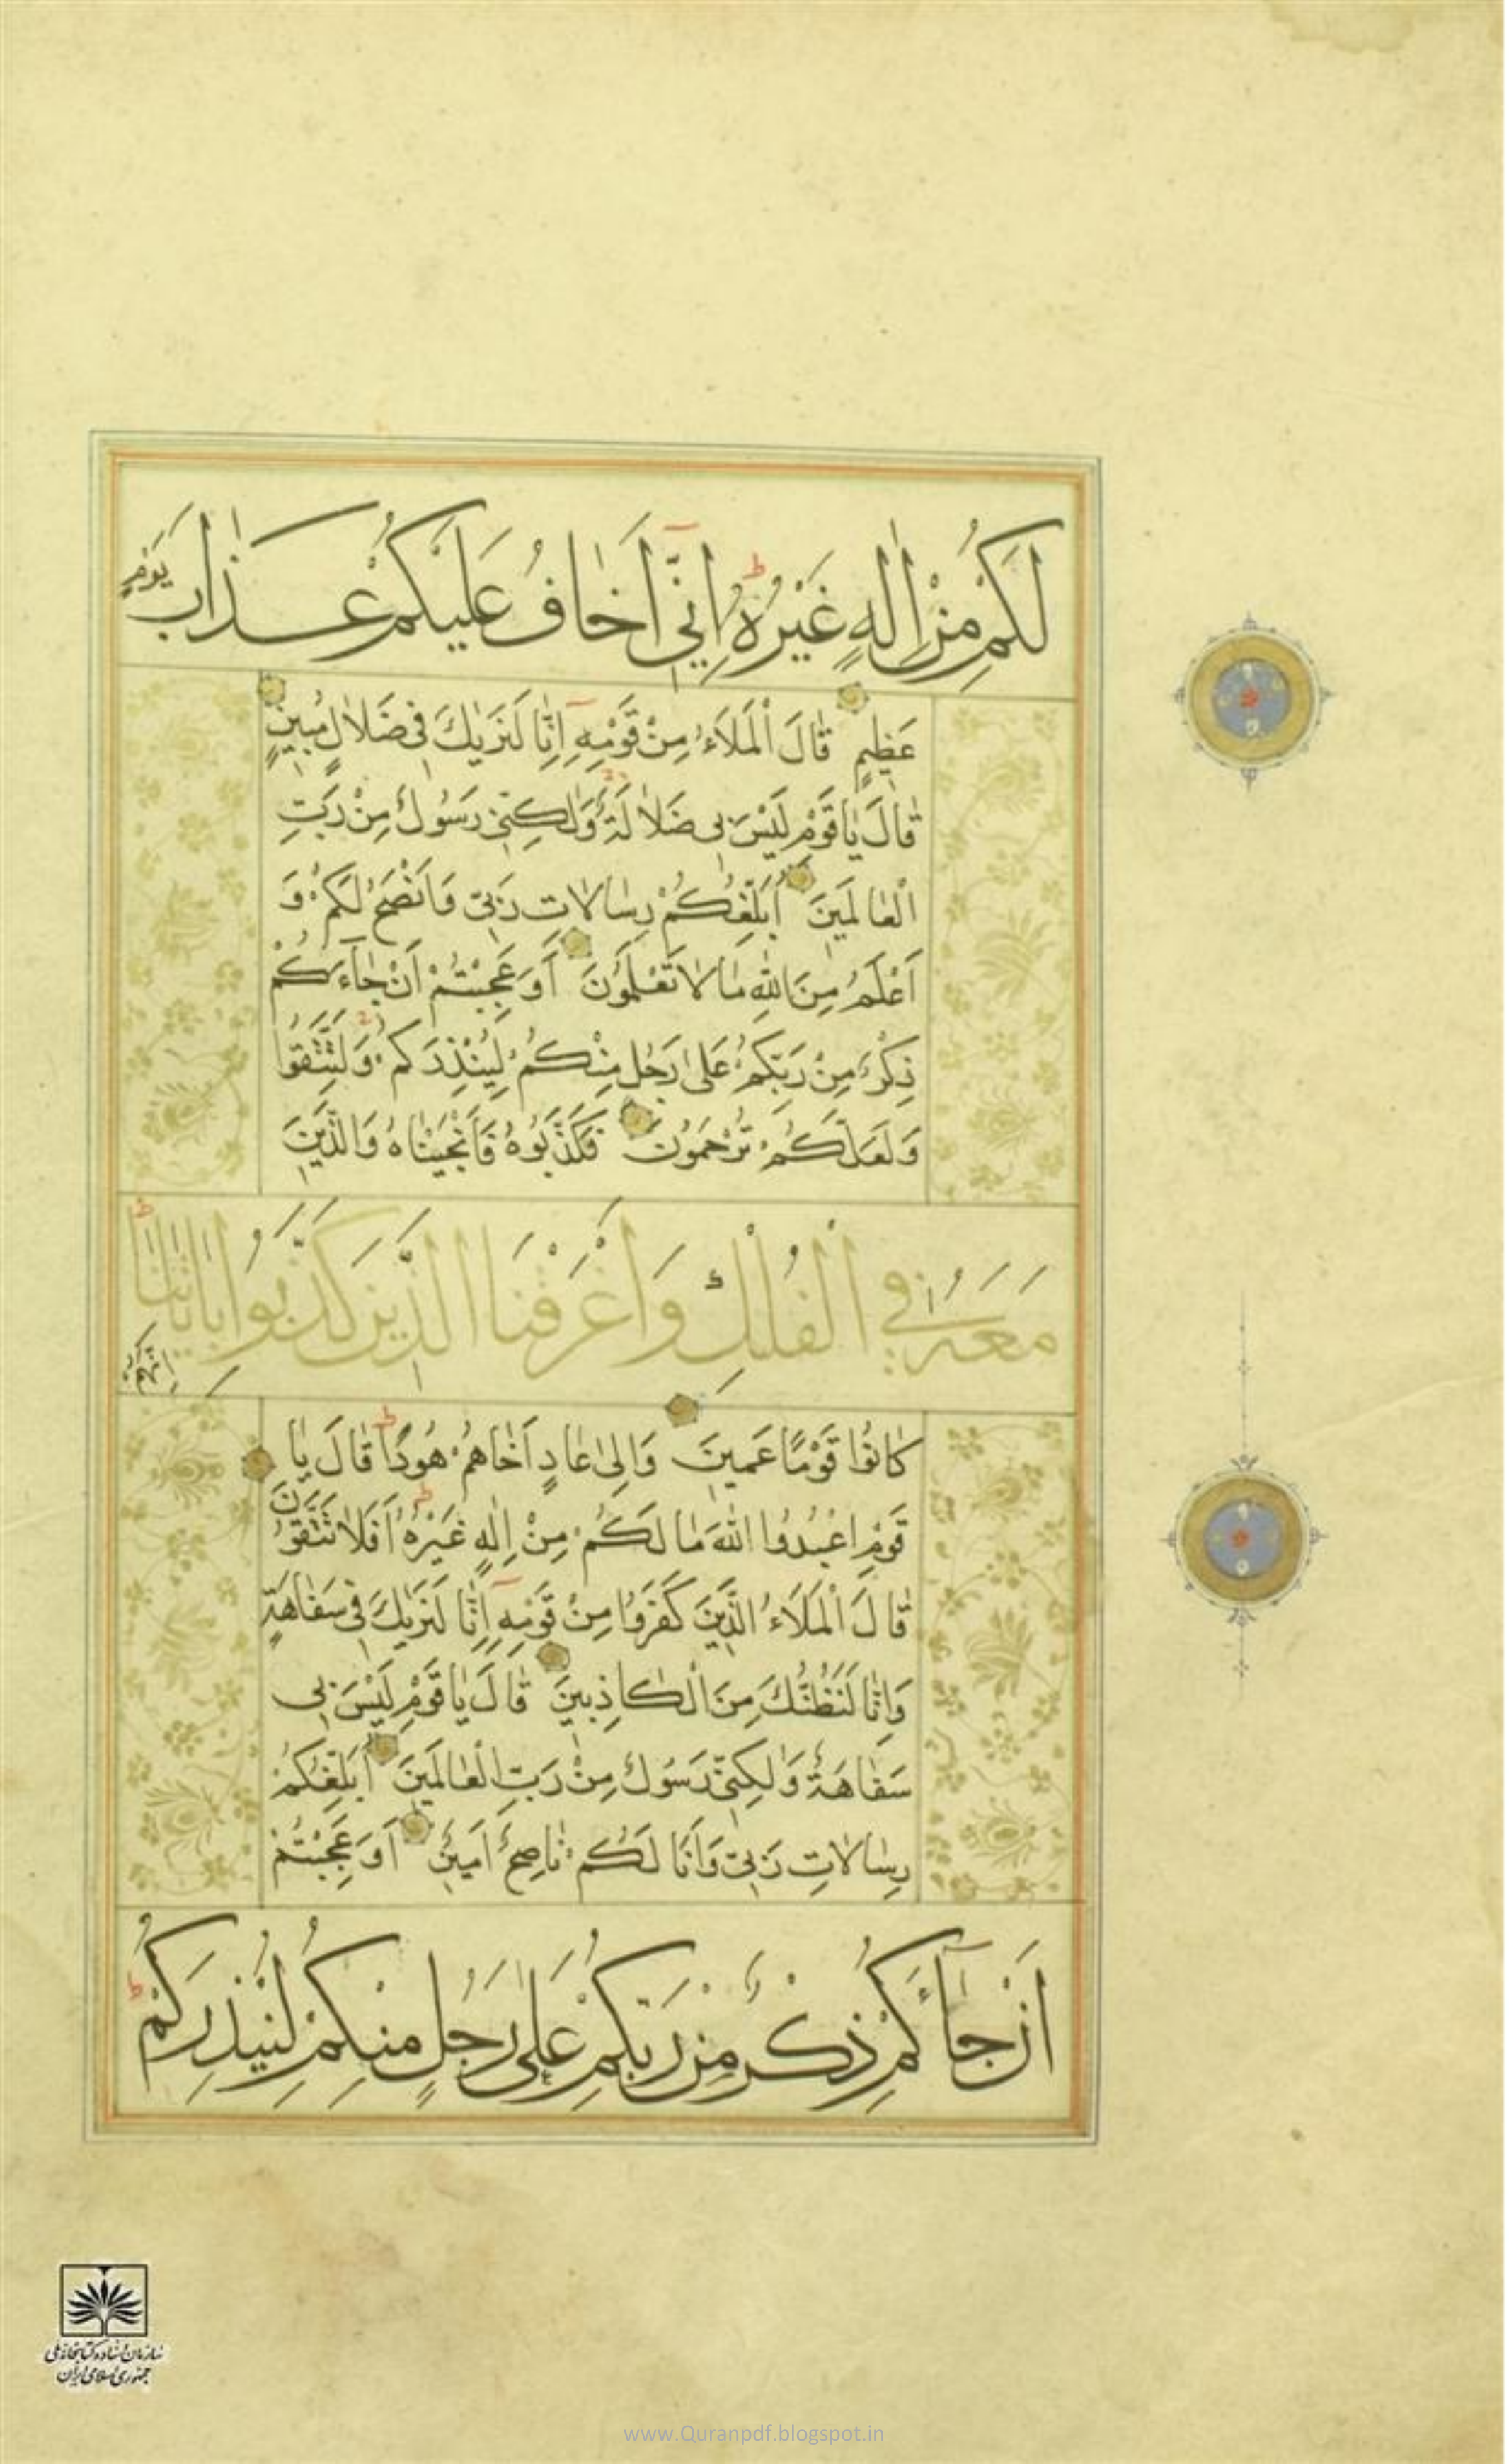 لَكُمْ مِنْ اِلٰهٍ غَيْرُهُ ط اِنِّي اَخَافُ عَلَيْكُمْ عَذَابَ يَوْمٍ
عَظِيمٍ قَالَ الْمَلَاءُ مِنْ قَوْمِهِ اِنَّا لَنَرٰيكَ فِي ضَلَالٍ مُبِينٍ
قَالَ يَا قَوْمِ لَيْسَ بِي ضَلَالَةٌ وَلٰكِنِّي رَسُولٌ مِنْ رَبِّ
الْعَالَمِينَ اُبَلِّغُكُمْ رِسَالَاتِ رَبِّي وَاَنْصَحُ لَكُمْ وَ
اَعْلَمُ مِنَ اللّٰهِ مَا لَا تَعْلَمُونَ اَوَعَجِبْتُمْ اَنْ جَآءَكُمْ
ذِكْرٌ مِنْ رَبِّكُمْ عَلٰى رَجُلٍ مِنْكُمْ لِيُنْذِرَكُمْ وَلِتَتَّقُوا
وَلَعَلَّكُمْ تُرْحَمُونَ فَكَذَّبُوهُ فَاَنْجَيْنَاهُ وَالَّذِينَ
مَعَهُ فِي الْفُلْكِ وَاَغْرَقْنَا الَّذِينَ كَذَّبُوا بِاٰيَاتِنَا ط اِنَّهُمْ
كَانُوا قَوْمًا عَمِينَ وَاِلٰى عَادٍ اَخَاهُمْ هُودًا ط قَالَ يَا
قَوْمِ اعْبُدُوا اللّٰهَ مَا لَكُمْ مِنْ اِلٰهٍ غَيْرُهُ ط اَفَلَا تَتَّقُونَ
قَالَ الْمَلَاءُ الَّذِينَ كَفَرُوا مِنْ قَوْمِهِ اِنَّا لَنَرٰيكَ فِي سَفَاهَةٍ
وَاِنَّا لَنَظُنُّكَ مِنَ الْكَاذِبِينَ قَالَ يَا قَوْمِ لَيْسَ بِي
سَفَاهَةٌ وَلٰكِنِّي رَسُولٌ مِنْ رَبِّ الْعَالَمِينَ اُبَلِّغُكُمْ
رِسَالَاتِ رَبِّي وَاَنَا لَكُمْ نَاصِحٌ اَمِينٌ اَوَعَجِبْتُمْ
اَنْ جَآءَكُمْ ذِكْرٌ مِنْ رَبِّكُمْ عَلٰى رَجُلٍ مِنْكُمْ لِيُنْذِرَكُمْ ط
سازمان اسناد و کتابخانه ملی
جمهوری اسلامی ایران
www.Quranpdf.blogspot.in